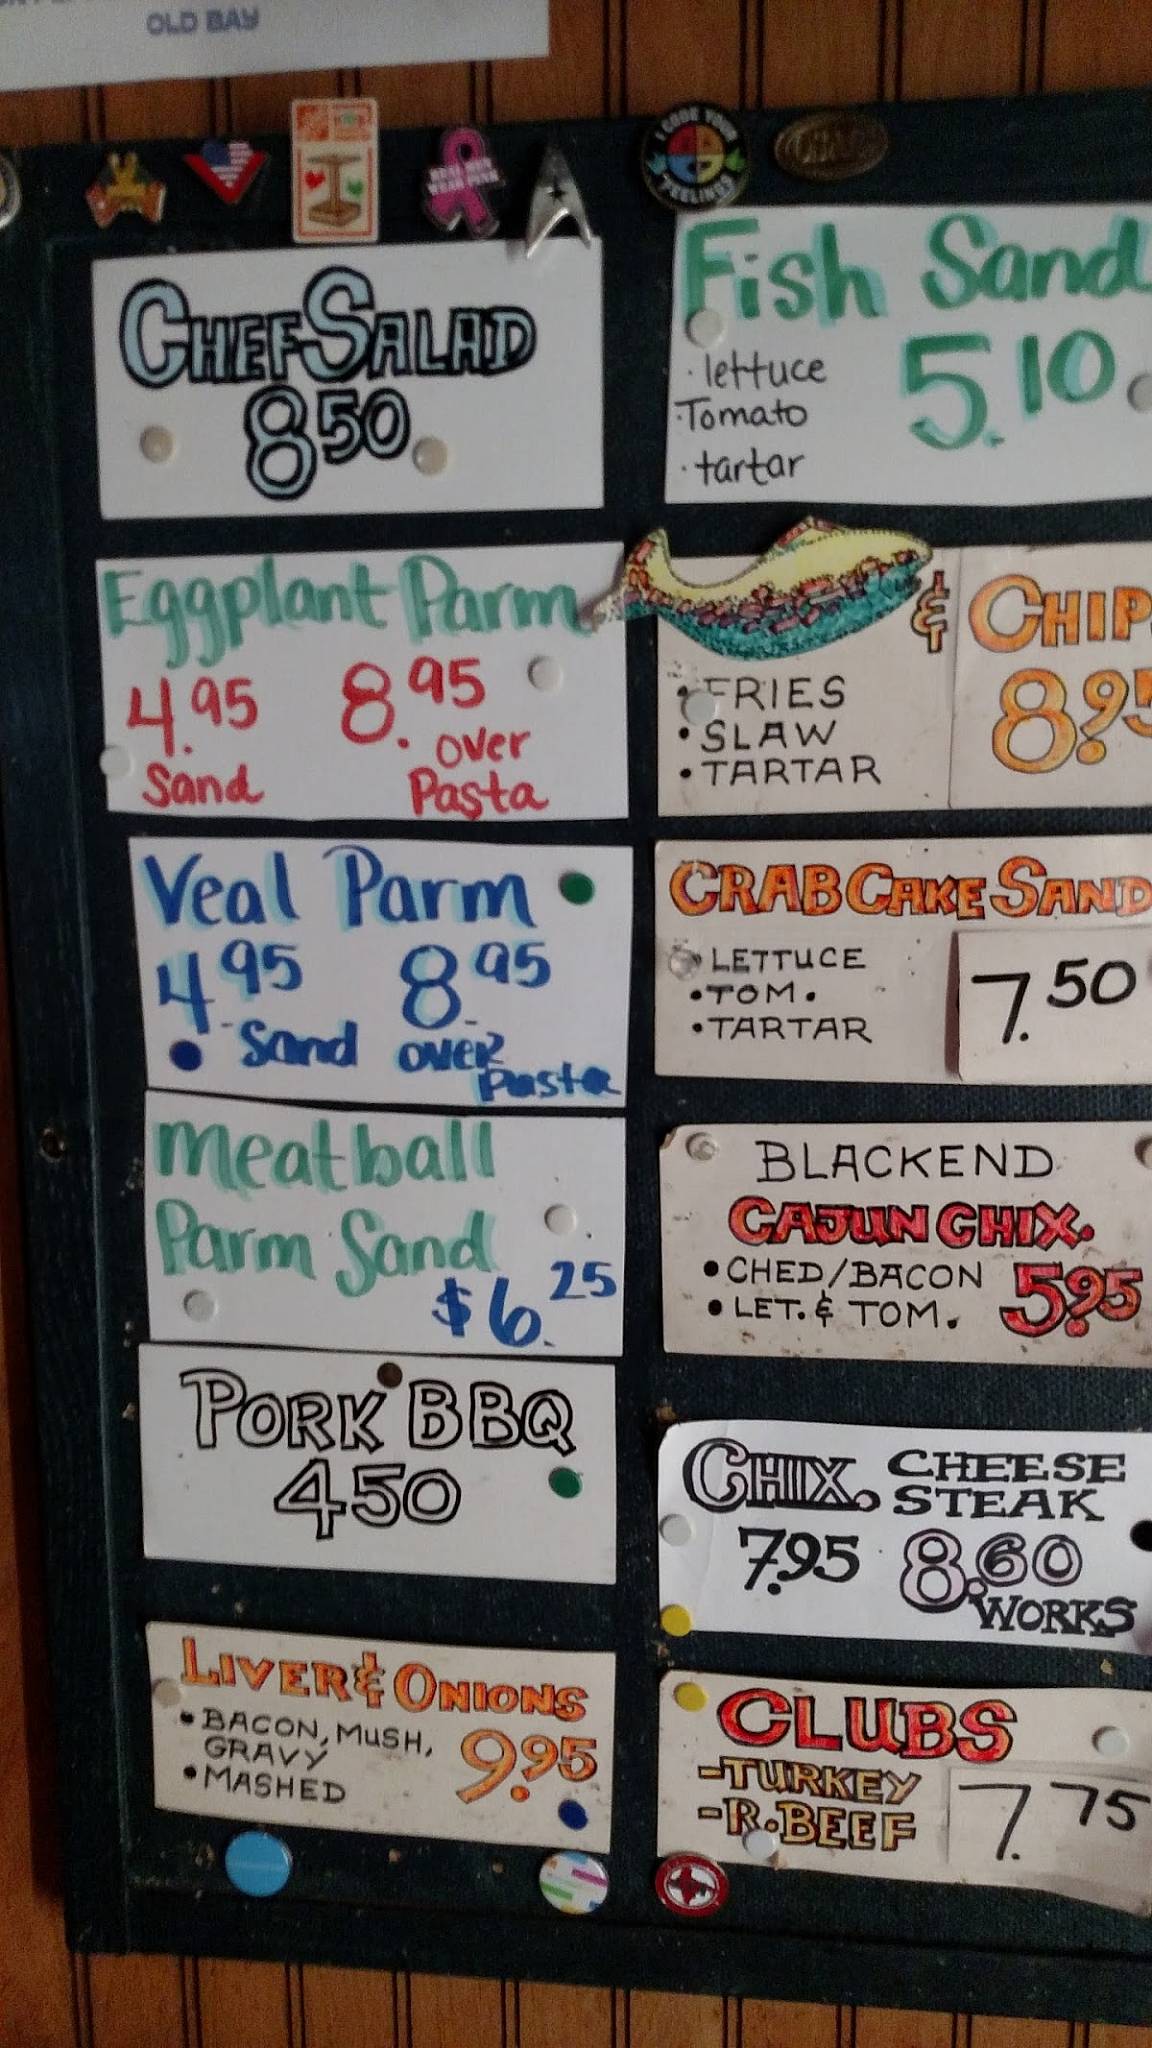 OLD BAY
I CODE YOUR
FEELINGS
CHEF SALAD
8 50
Eggplant Parm
4.95 8.95
Sand over
Pasta
Veal Parm
4.95 8.95
Sand over
Pasta
Meatball
Parm Sand
$6.25
PORK BBQ
450
LIVER & ONIONS
• BACON, MUSH,
GRAVY
• MASHED
9.95
Fish Sand
· lettuce
·Tomato
· tartar
5.10
& CHIP
• FRIES
• SLAW
• TARTAR
8.95
CRAB CAKE SAND
• LETTUCE
• TOM.
• TARTAR
7.50
BLACKEND
CAJUN CHIX.
• CHED/BACON
• LET. & TOM.
5.95
CHIX. CHEESE
STEAK
7.95 8.60
WORKS
CLUBS
-TURKEY
-R.BEEF
7.75